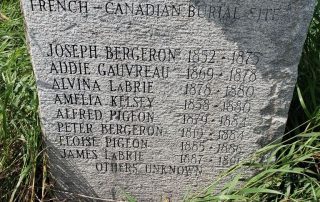 FRENCH - CANADIAN BURIAL SITE
JOSEPH BERGERON 1852 - 1875
ADDIE GAUVREAU 1869 - 1878
ALVINA LaBRIE 1878 - 1880
AMELIA KELSEY 1858 - 1880
ALFRED PIGEON 1879 - 1882
PETER BERGERON 1819 - 1884
ELOISE PIGEON 1885 - 1886
JAMES LaBRIE 1887 -
OTHERS UNKNOWN